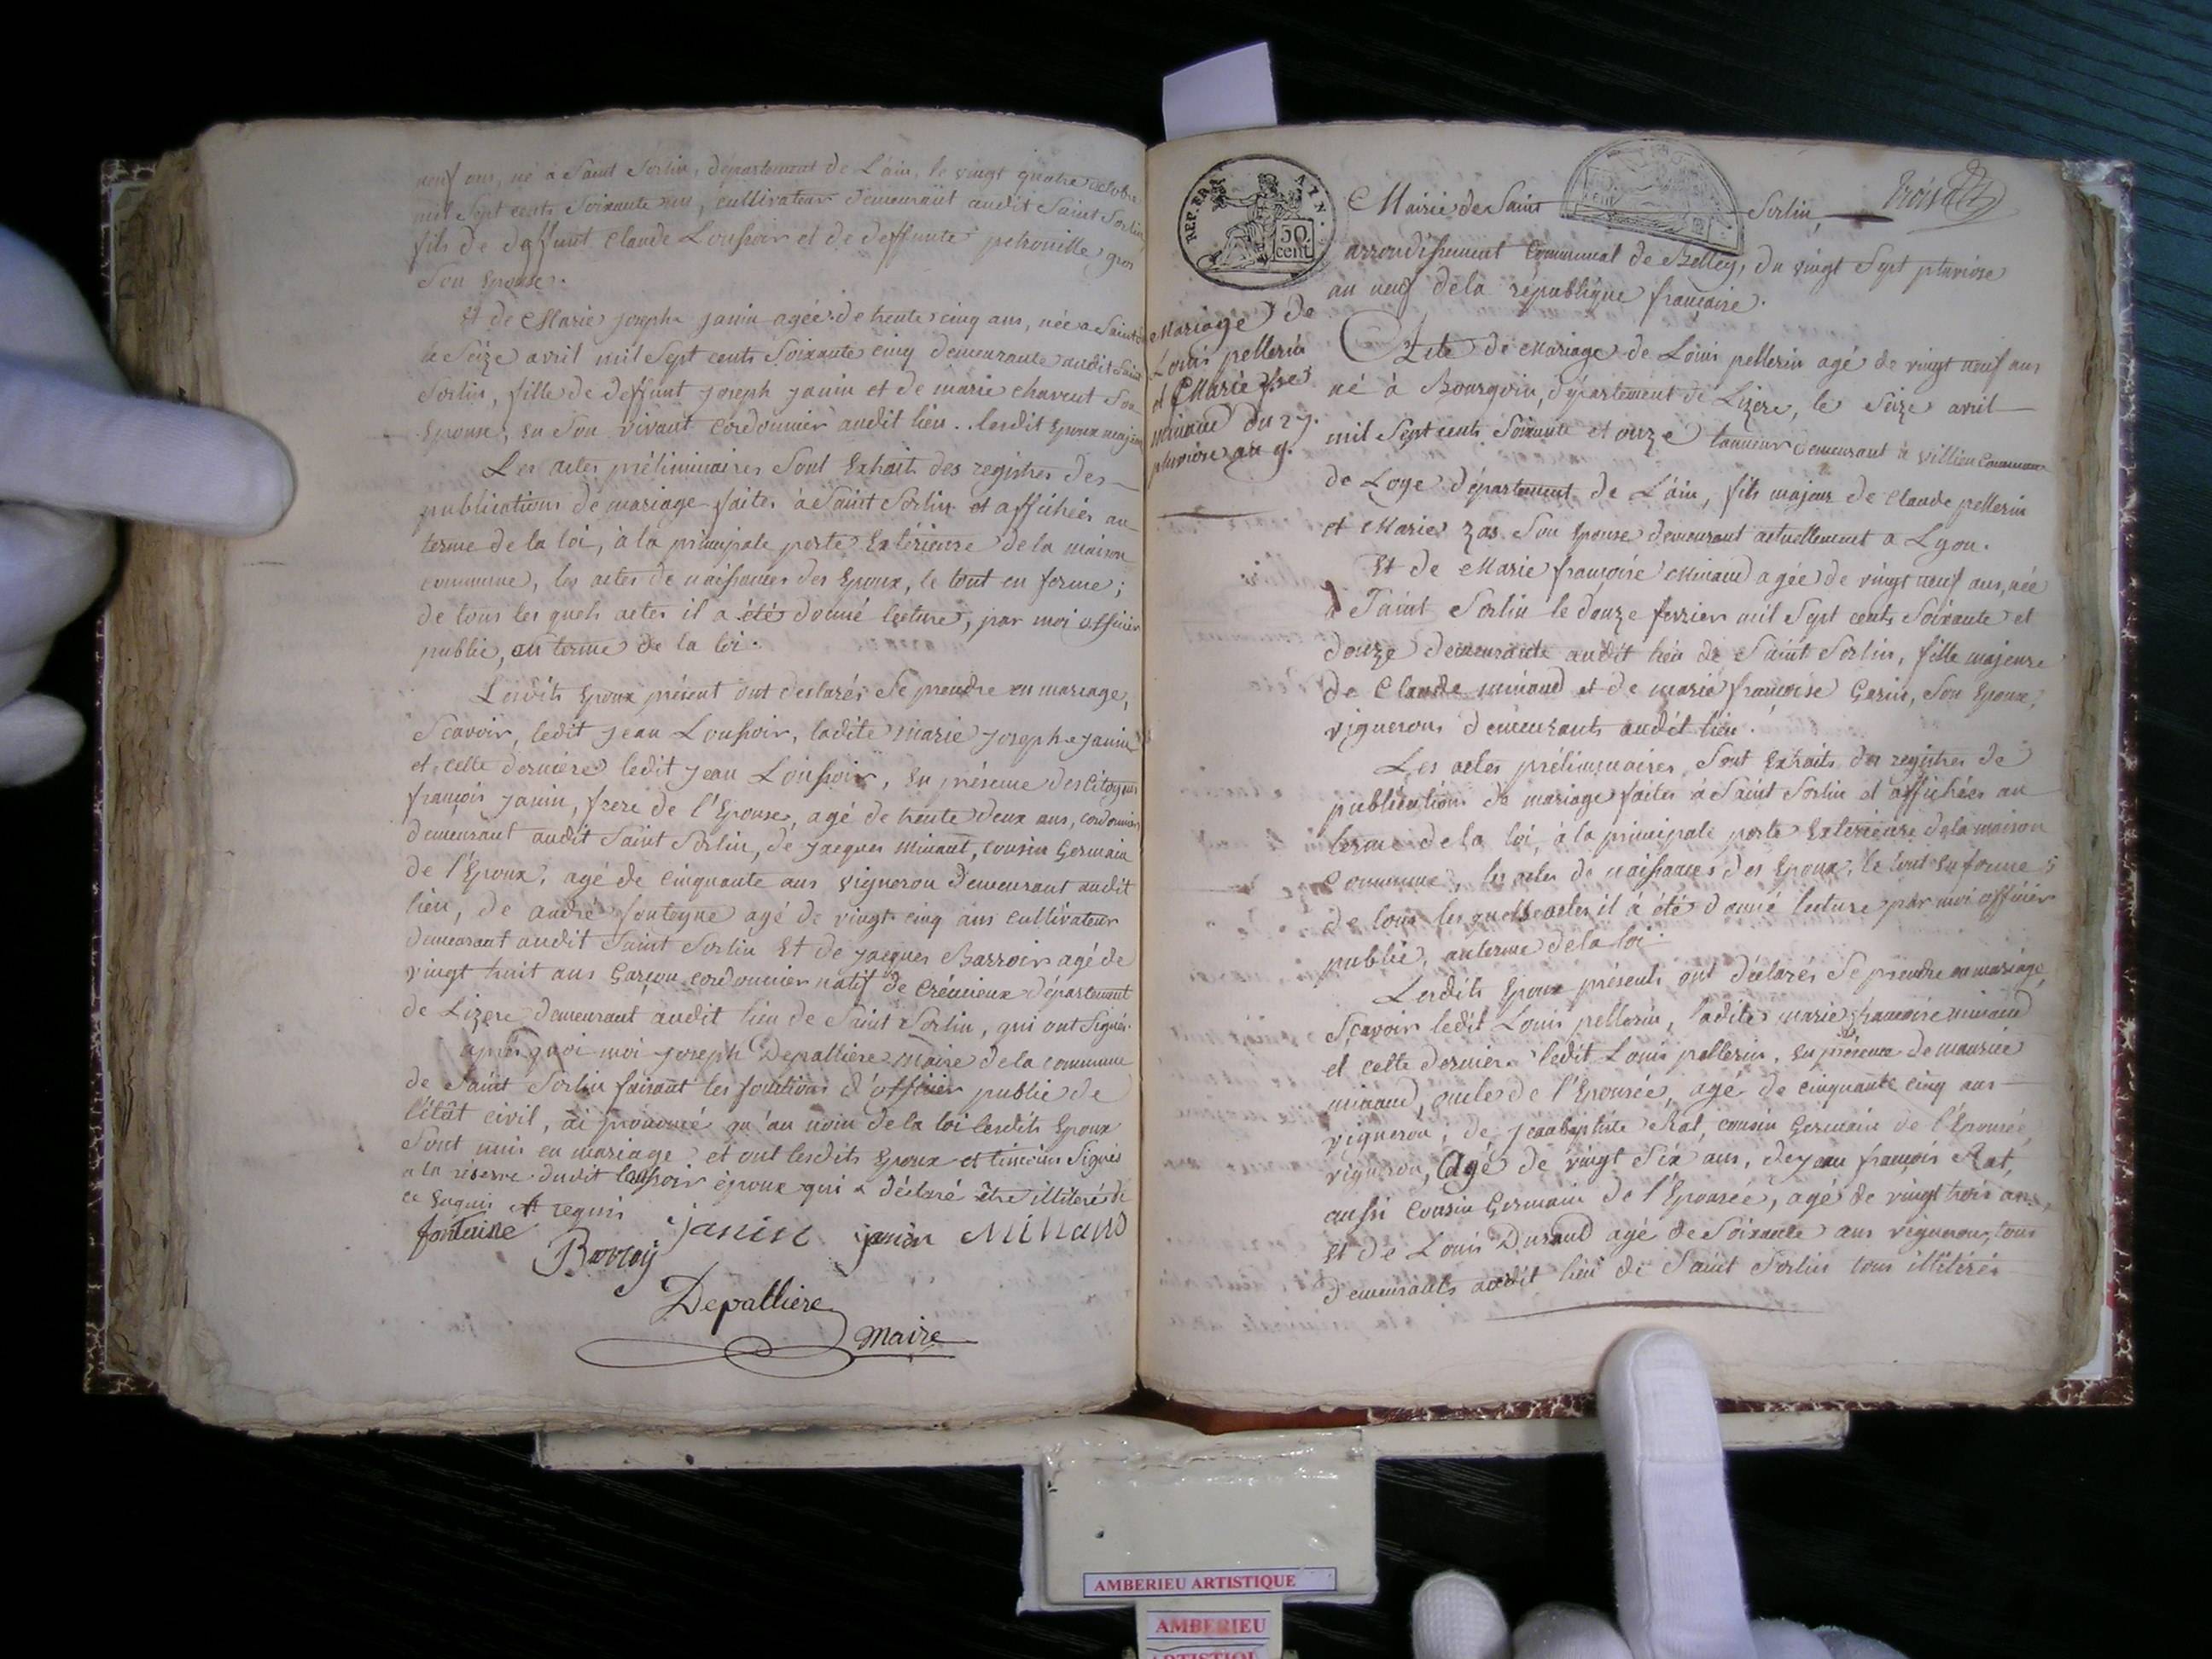 neuf ans, né a Saint Sorlin, département de L'ain, le vingt quatre octobre
mil Sept cents Soixante un, cultivateur demeurant audit Saint Sorlin
fils de deffunt Claude Loussoir et de deffunte petronille gros
Son Epouse.
Et de Marie josephe janin agée de trente cinq ans, née a Saint
le Seize avril mil Sept cents Soixante cinq demeurante audit Saint
Sorlin, fille de deffunt joseph janin et de marie charent Son
Epouse, en Son vivant Cordonnier audit lieu. lesdit Epoux majeurs
Les actes préliminaires Sont Extraits des registres des
publications de mariage faites à Saint Sorlin et affichées au
terme de la loi, à la principale porte Extérieure de la maison
commune, les actes de naissances des Epoux, le tout en forme ;
de tous les quels actes il a été donné lecture, par moi officier
public, au terme de la loi.
Lesdits Epoux présent ont declarés Se prendre en mariage,
Scavoir, ledit jean Loussoir, ladite marie josephe janin
et, cette dernière ledit jean Loussoir, en présence des Citoyens
françois janin, frere de l'Epouse, agé de trente deux ans, cordonnier
demeurant audit Saint Sorlin, de jacques Minaut, cousin Germain
de l'Epoux, agé de cinquante ans vigneron demeurant audit
lieu, de andré fontayne agé de vingt cinq ans cultivateur
demeurant audit Saint Sorlin Et de jacques Barroir agé de
vingt huit ans Garçon cordonnier natif de Crémieux département
de Lizere demeurant audit lieu de Saint Sorlin, qui ont Signés.
après quoi moi joseph Depalliere maire de la commune
de Saint Sorlin faisant les fonctions d'officier public de
l'état civil, ai prononcé qu'au nom de la loi lesdits Epoux
Sont unis en mariage et ont lesdits Epoux et temoins Signés
a la réserve dudit loussoir époux qui a déclaré être illitéré de
ce Enquis et requis
fontaine janin janin Minaud
Barroy
Depalliere
Maire
REP. FRA AIN.
50
cent.
Mairie de Saint Sorlin, trois
arrondissement Communal de Belley, du vingt Sept pluviose
an neuf de la république française.
Mariage de
Louis pellerin
et Marie fse
minaud du 27.
pluviose an 9.
Acte de Mariage de Louis pellerin agé de vingt neuf ans
né à Bourgoin, département de Lizere, le Seize avril
mil Sept cents Soixante et onze tanneur demeurant à villieu Commune
de Loye département de L'ain, fils majeur de Claude pellerin
et Marie zas Son Epouse demeurant actuellement a Lyon.
Et de Marie françoise Minaud agée de vingt neuf ans, née
à Saint Sorlin le douze fevrier mil Sept cents Soixante et
douze demeurante audit lieu de Saint Sorlin, fille majeure
de Claude minaud et de marie françoise Garin, Son Epoux,
vignerons demeurants audit lieu.
Les actes préliminaires Sont Extraits des registres de
publications de mariage faites à Saint Sorlin et affichées au
terme de la loi, à la principale porte Extérieure de la maison
Commune, les actes de naissances des Epoux, le tout en forme ;
de tous les quels actes il à été donné lecture par moi officier
public, au terme de la loi
Lesdits Epoux présents ont déclarés Se prendre en mariage,
Sçavoir ledit Louis pellerin, ladite marie françoise minaud
et cette derniere ledit Louis pellerin, en présence de maurice
minaud, oncle de l'Epousée, agé de cinquante cinq ans
vigneron, de jean baptiste Rat, cousin Germain de l'Epousée,
vigneron, Agé de vingt Six ans, de jean françois Rat,
aussi Cousin Germain de l'Epousée, agé de vingt trois ans,
Et de Louis Durand agé de Soixante ans vigneron, tous
demeurants audit lieu de Saint Sorlin tous illitérés
AMBERIEU ARTISTIQUE
AMBERIEU
ARTISTIQUE